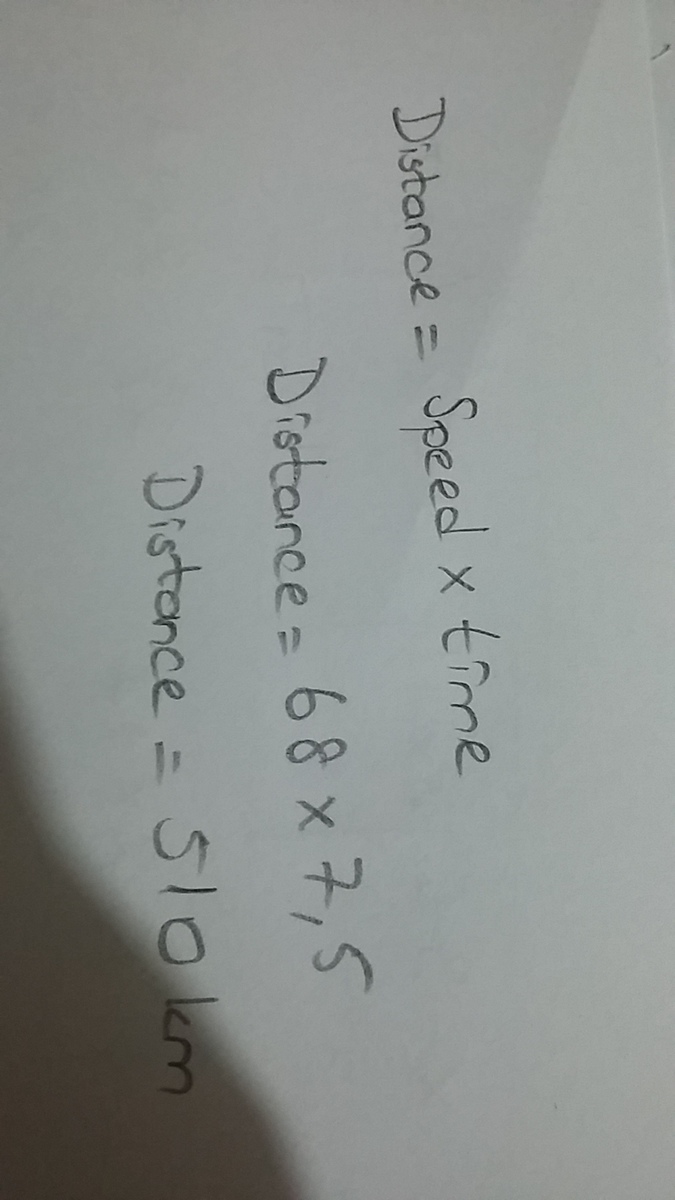 Distance = Speed x time
Distance = 68 x 7,5
Distance = 510 km